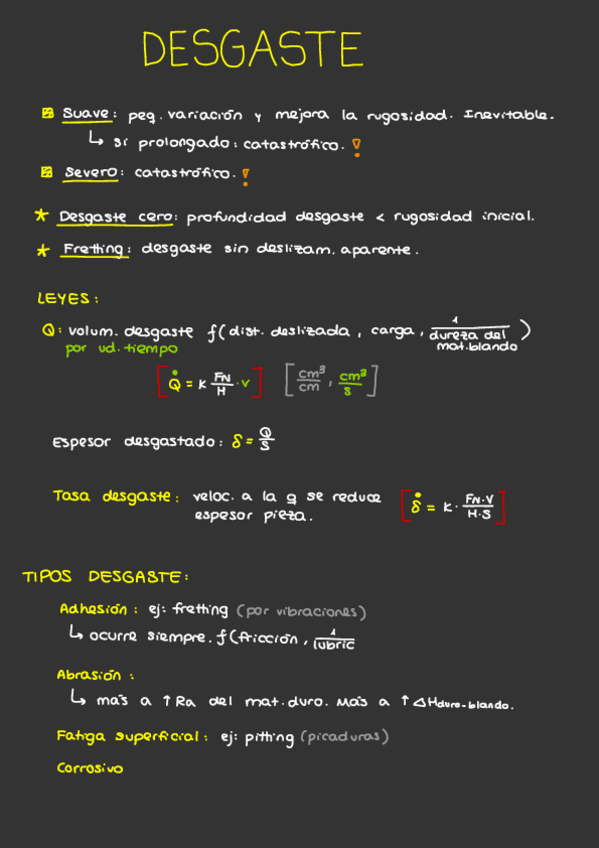 DESGASTE
Suave: peq. variación y mejora la rugosidad. Inevitable.
↳ si prolongado: catastrófico. !
Severo: catastrófico. !
* Desgaste cero: profundidad desgaste < rugosidad inicial.
* Fretting: desgaste sin deslizam. aparente.
LEYES:
Q: volum. desgaste f(dist. deslizada, carga, 1/dureza del mat.blando)
por ud. tiempo
[Q̇ = K FN/H · v] [cm³/cm, cm³/s]
Espesor desgastado: δ = Q/S
Tasa desgaste: veloc. a la q se reduce
espesor pieza.
[δ̇ = K · FN·V/H·S]
TIPOS DESGASTE:
Adhesión: ej: fretting (por vibraciones)
↳ ocurre siempre. f(fricción, 1/lubric
Abrasión:
↳ más a ↑Ra del mat.duro. Más a ↑ΔHduro-blando.
Fatiga superficial: ej: pitting (picaduras)
Corrosivo